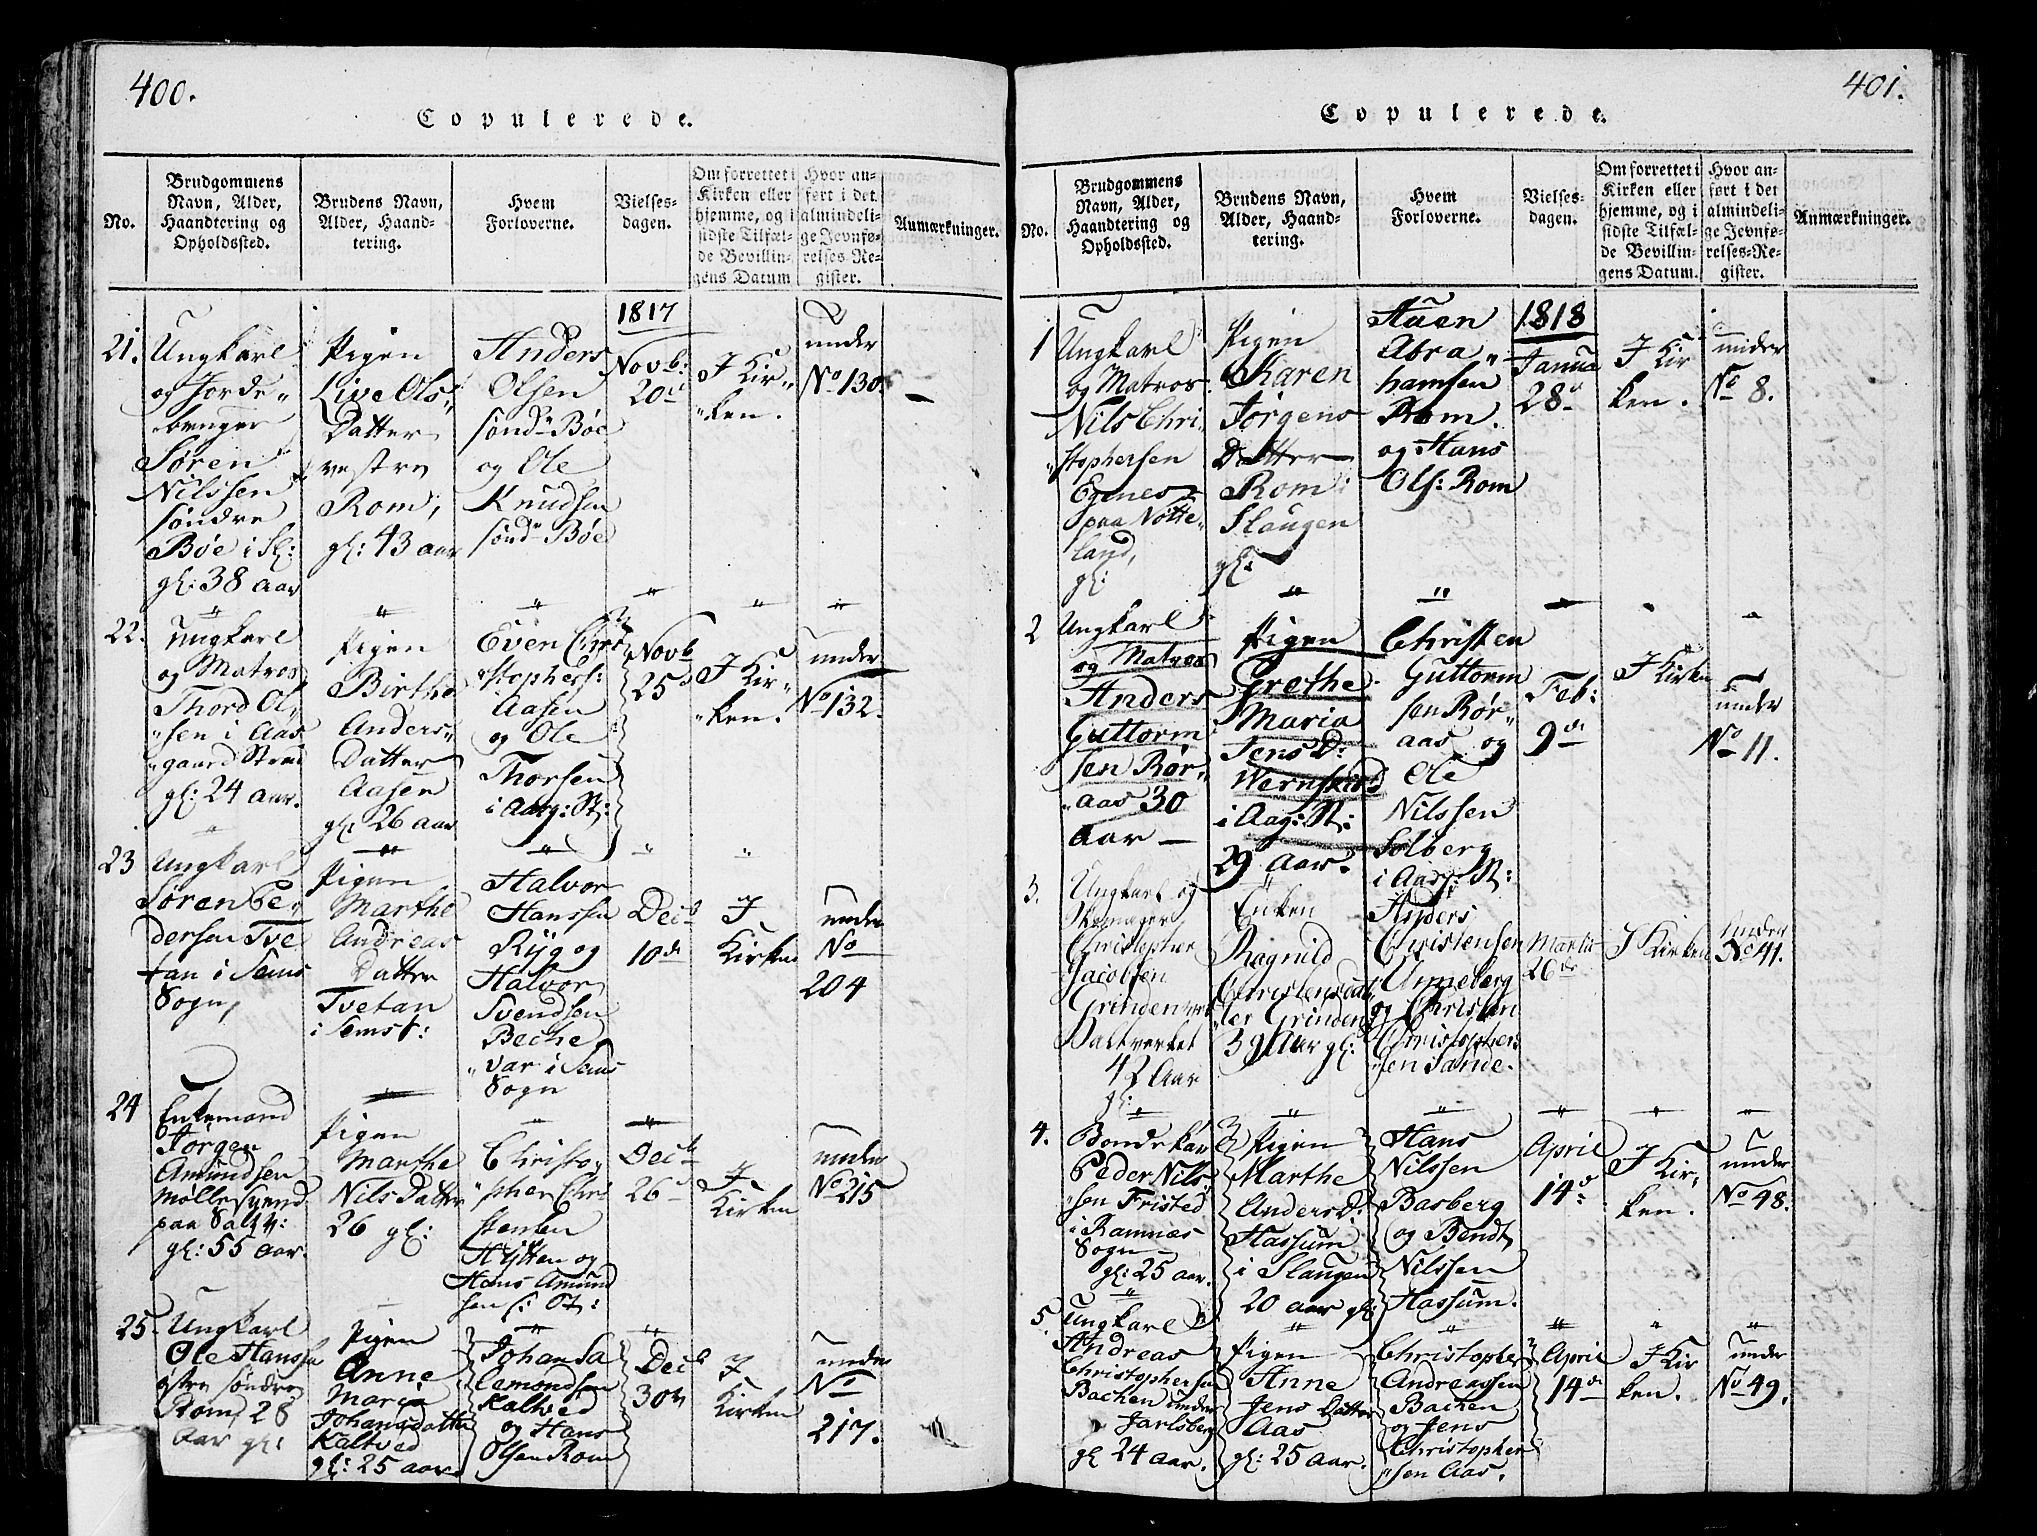 400.
Copulerede.
No.
Brudgommens
Navn, Alder,
Haandtering og
Opholdssted.
Brudens Navn,
Alder, Haand-
tering.
Hvem
Forloverne.
Vielses-
dagen.
Om forrettet i
Kirken eller
hjemme, og i
sidste Tilfæl-
de Bevillin-
gens Datum
Hvor an-
ført i det
almindeli-
ge Jevnfø-
relses-Re-
gister.
Anmærkninger.
1817
21.
Ungkarl
og Jorde„
bruger
Søren
Nilssen
søndre
Bøe i Sl:
gl: 38 aar
Pigen
Live Ols„
Datter
vestre
Rom,
gl: 43 aar
Anders
Olsen
sønd Bøe
og Ole
Knudsen
sønd Bøe
Novb:
20de
I Kir„
„ken.
under
No 130
22.
Ungkarl
og Matros
Thord Ol„
„sen i Aas
gaard Strand
gl: 24 aar.
Pigen
Birthe
Anders„
Datter
Aasen
gl: 26 aar
Even Chri
„stophers:
Aasen
og Ole
Thorsen
i Aasg: St:
Novb
25
I Kir„
„ken.
under
No 132.
23
Ungkarl
Søren Pe„
dersen Tve
tan i Sems
Sogn,
Pigen
Marthe
Andreas
Datter
Tvetan
i Sems S:
Halvor
Hanssen
Ryg og
Halvor
Svendsen
Beche
„var i Sems
Sogn
Decb
10de
I
Kirken
under
No
204
24
Enkemand
Jørgen
Amundsen
Møllesvend
paa
gl: 55 aar.
Pigen
Marthe
Nils Datter
26 gl:
Christo„
„pher Chri
stensen
Hytten og
Hans Amund
sen
Decb
26
I
Kirken
under
No 215
25.
Ungkarl
Ole Hanssen
søndre
Rom, 28
Aar gl:
Pigen
Anne
Maria
Johansdatter
Kaltved
gl: 25 aar
Johan Sa
lemondsen
Kaltved
og Hans
Olsen Rom
Decb
30te
I
Kirken
under
No
217.
401.
Copulerede.
No.
Brudgommens
Navn, Alder,
Haandtering og
Opholdssted.
Brudens Navn,
Alder, Haand-
tering.
Hvem
Forloverne.
Vielses-
dagen.
Om forrettet i
Kirken eller
hjemme, og i
sidste Tilfæl-
de Bevillin-
gens Datum.
Hvor an-
ført i det
almindeli-
ge Jevnfø-
relses-Re-
gister.
Anmærkninger.
1818
1
Ungkarl
og Matros
Nils Chri„
„stophersen
Egenes
paa Nøtte„
land,
gl:
Pigen
Karen
Jørgens
Datter
Rom i
Slaugen
gl:
Abra„
hamsen
Rom.
og Hans
Ols: Rom
Janua
28de
I Kir
ken.
under
No 8.
2
Ungkarl
og Matros
Anders
Guttorm
sen Rør„
„aas 30
aar —
Pigen
Grethe
Maria
Jens D:
i Aag: St:
29 Aar.
Christen
Guttorm
sen Rør„
aas og
Ole
Nilssen
Solberg
i Aasg: St:
Feb:
9de
I Kirken
under
No 11.
3.
Ungkarl og
Skomager
Christopher
Jacobsen
Grinden ved
Saltverket
42 Aar
gl:
Enken
Ragnild
Christensdat„
„ter Grinden
39 Aar gl:
Anders
Christensen
Unneberg
og Christen
Christopher
„sen Sande.
Martii
26de
I Kirken
Under
No 41.
4.
Bondekarl
Peder Nils„
„sen Fristed
i Ramnæs
Sogn
gl: 25 aar.
Pigen
Marthe
Anders D:
Hassum
i Slaugen
20 aar gl:
Hans
Nilssen
Basberg
og Bendt
Nilssen
Hassum.
April
14de
I Kir„
ken.
under
No 48.
5.
Ungkarl
Andreas
Christophersen
Bachen under
Jarlsberg
gl 24 aar.
Pigen
Anne
Jens Datter
Aas
gl: 25 aar.
Christopher
Andreassen
Bachen
og Jens
Christopher
„sen Aas.
April
14de
I Kir
ken.
under
No 49.